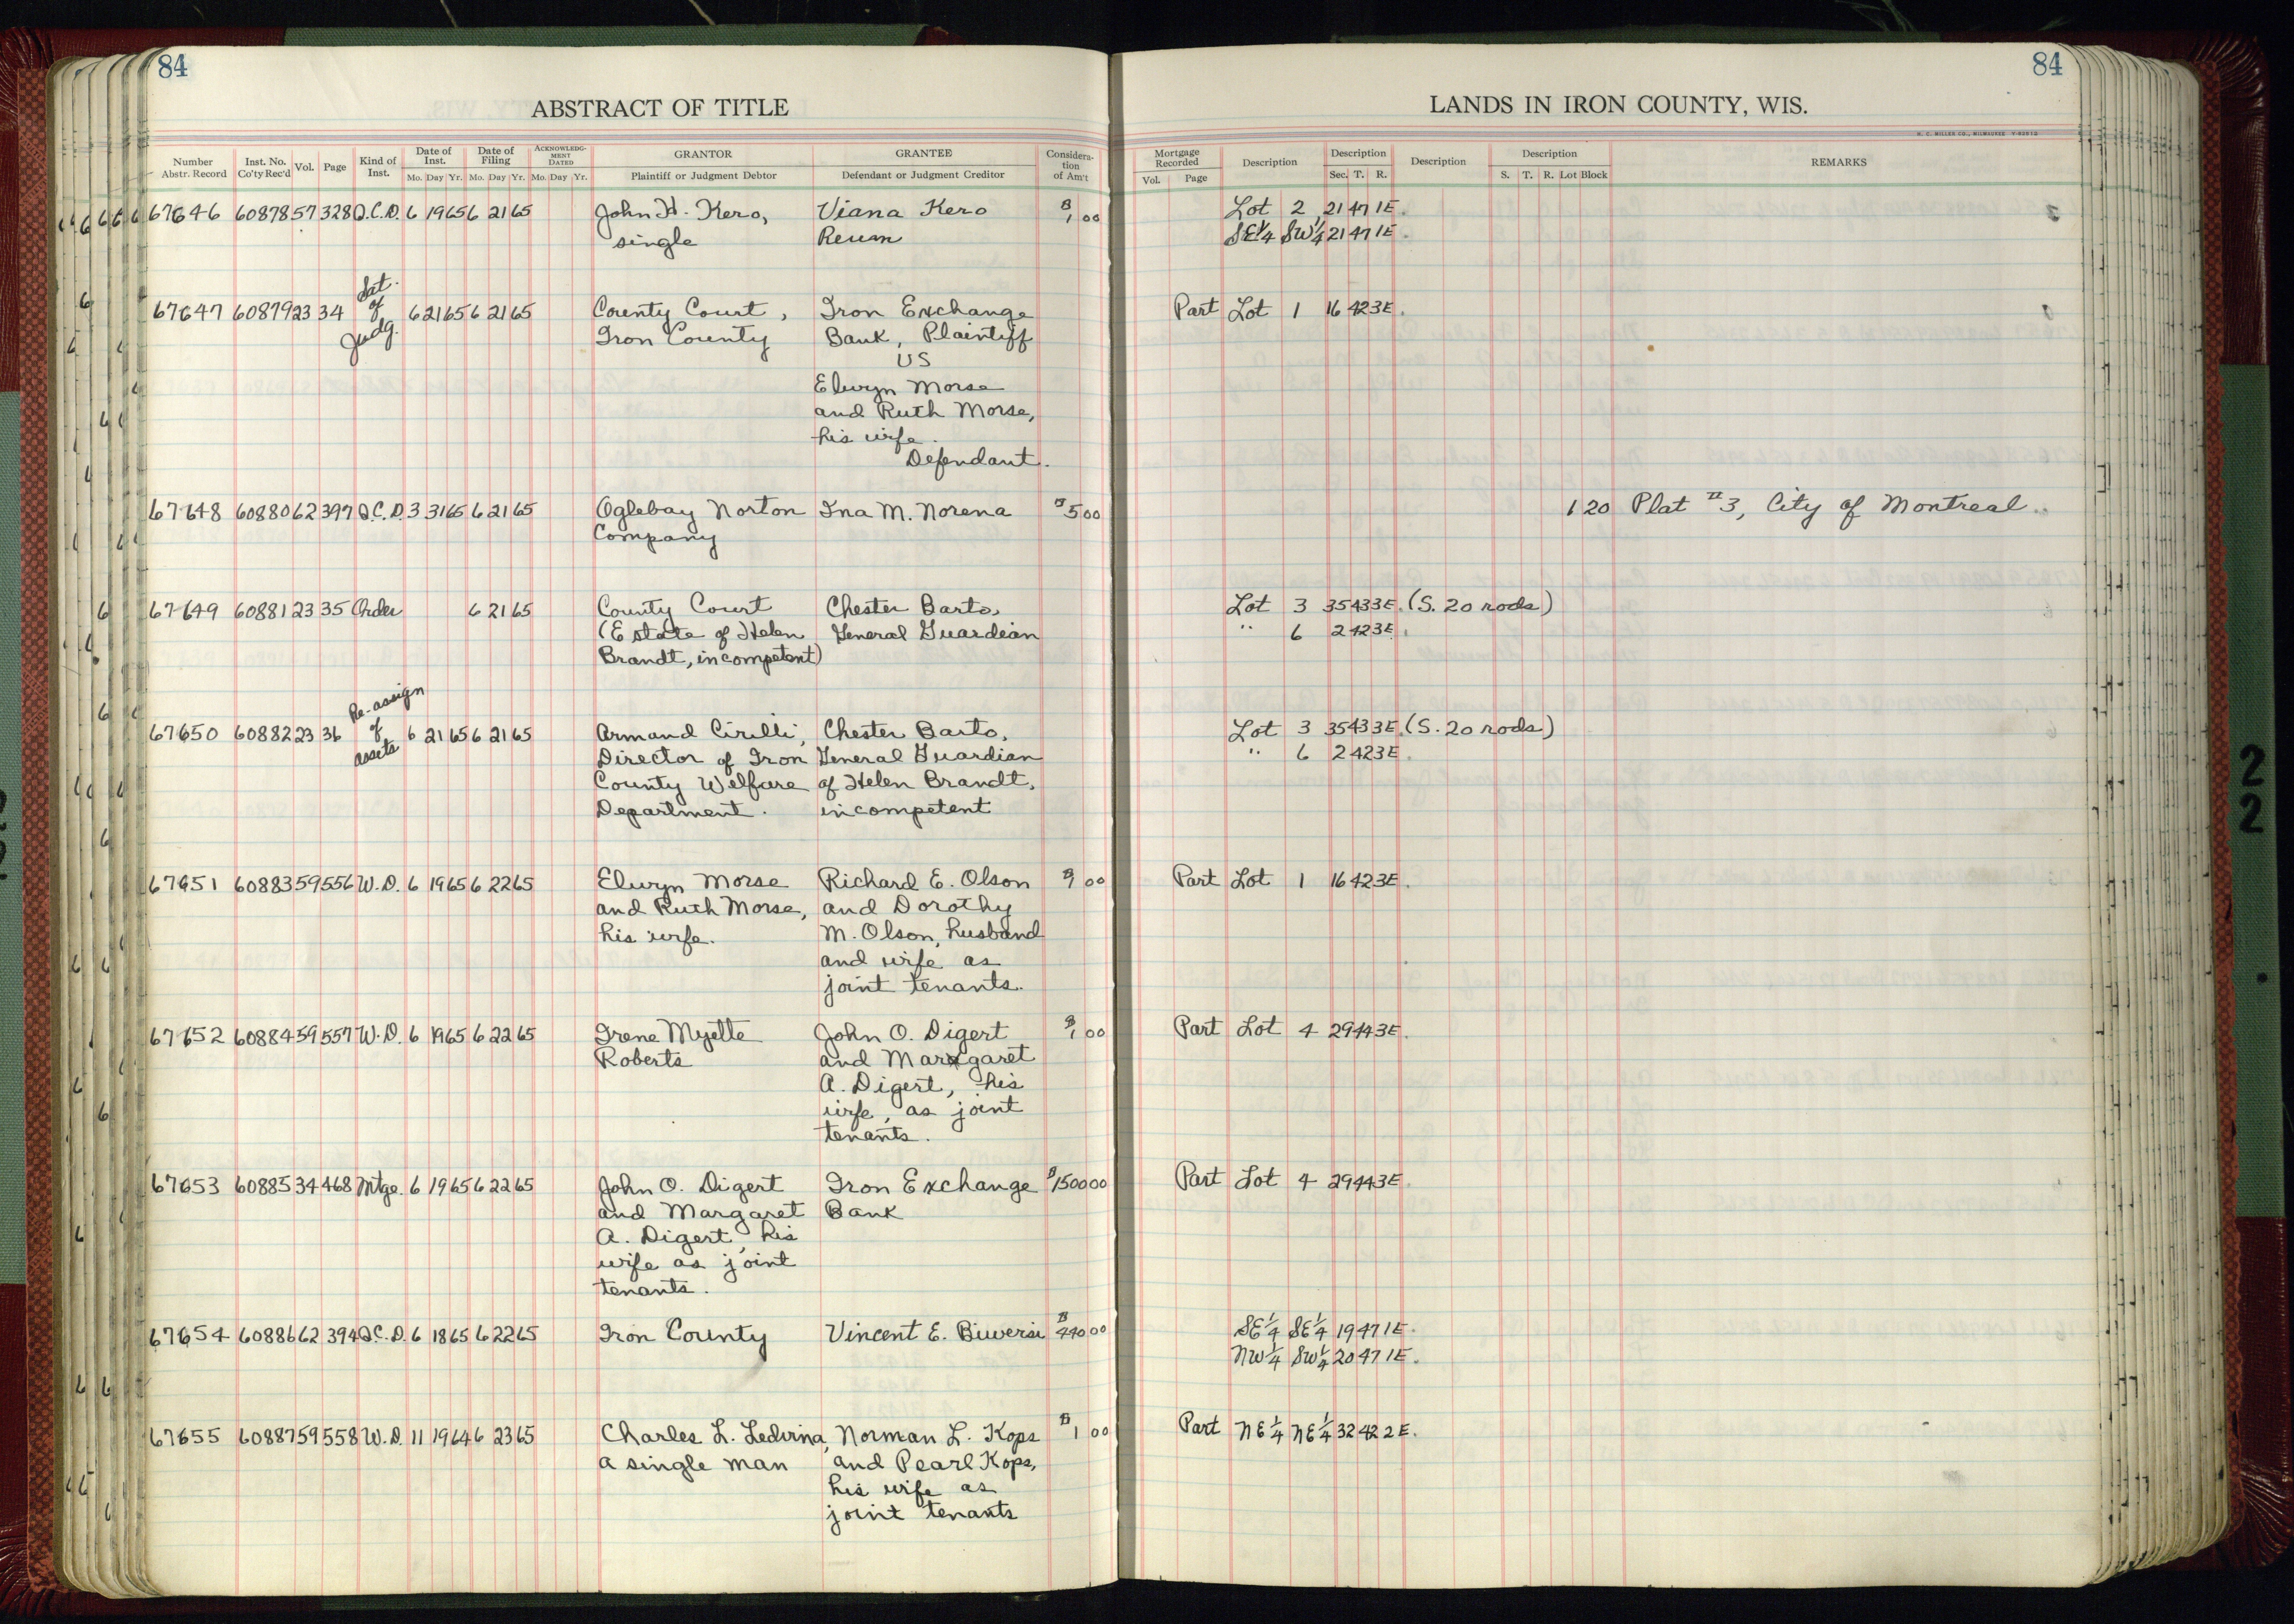 84
84
ABSTRACT OF TITLE
LANDS IN IRON COUNTY, WIS.
H. C. MILLER CO., MILWAUKEE
Number Abstr. Record Inst. No. Co'ty Rec'd Vol. Page Kind of Inst. Date of Inst. Mo. Day Yr. Date of Filing Mo. Day Yr. ACKNOWLEDGMENT DATED Mo. Day Yr. GRANTOR Plaintiff or Judgment Debtor GRANTEE Defendant or Judgment Creditor Consideration of Am't
Mortgage Recorded Vol. Page Description Description Sec. T. R. Description Description S. T. R. Lot Block REMARKS
67646 60878 57 328 Q.C.D. 6 19 65 6 21 65 John H. Kero, Viana Kero $1 00 Lot 2 21 47 1E.
single Reum SE¼ SW¼ 21 47 1E.
Sat.
of
67647 60879 23 34 Judg. 6 21 65 6 21 65 County Court, Iron Exchange Part Lot 1 16 42 3E.
Iron County Bank, Plaintiff
VS
Elwyn Morse
and Ruth Morse,
his wife.
Defendant.
67648 60880 62 397 Q.C.D. 3 31 65 6 21 65 Oglebay Norton Ina M. Norena $5 00 1 20 Plat #3, City of Montreal.
Company
67649 60881 23 35 Order 6 21 65 County Court Chester Barto, Lot 3 35 43 3E. (S. 20 rods)
(Estate of Helen General Guardian " 6 2 42 3E.
Brandt, incompetent)
Re-assign
of
67650 60882 23 36 assets 6 21 65 6 21 65 Armand Cirilli, Chester Barto, Lot 3 35 43 3E. (S. 20 rods)
Director of Iron General Guardian " 6 2 42 3E.
County Welfare of Helen Brandt,
Department. incompetent
67651 60883 59 556 W.D. 6 19 65 6 22 65 Elwyn Morse Richard E. Olson $1 00 Part Lot 1 16 42 3E.
and Ruth Morse, and Dorothy
his wife. M. Olson, husband
and wife as
joint tenants.
67652 60884 59 557 W.D. 6 19 65 6 22 65 Irene Myette John O. Digert $1 00 Part Lot 4 29 44 3E.
Roberts and Margaret
A. Digert, his
wife, as joint
tenants.
67653 60885 34 468 Mtge. 6 19 65 6 22 65 John O. Digert Iron Exchange $1500 00 Part Lot 4 29 44 3E.
and Margaret Bank
A. Digert, his
wife as joint
tenants.
67654 60886 62 394 Q.C.D. 6 18 65 6 22 65 Iron County Vincent E. Biwersi $440 00 SE¼ SE¼ 19 47 1E.
NW¼ SW¼ 20 47 1E.
67655 60887 59 558 W.D. 11 19 64 6 23 65 Charles L. Ledvina, Norman L. Kops $1 00 Part NE¼ NE¼ 32 42 2E.
a single man and Pearl Kops,
his wife as
joint tenants
2
2